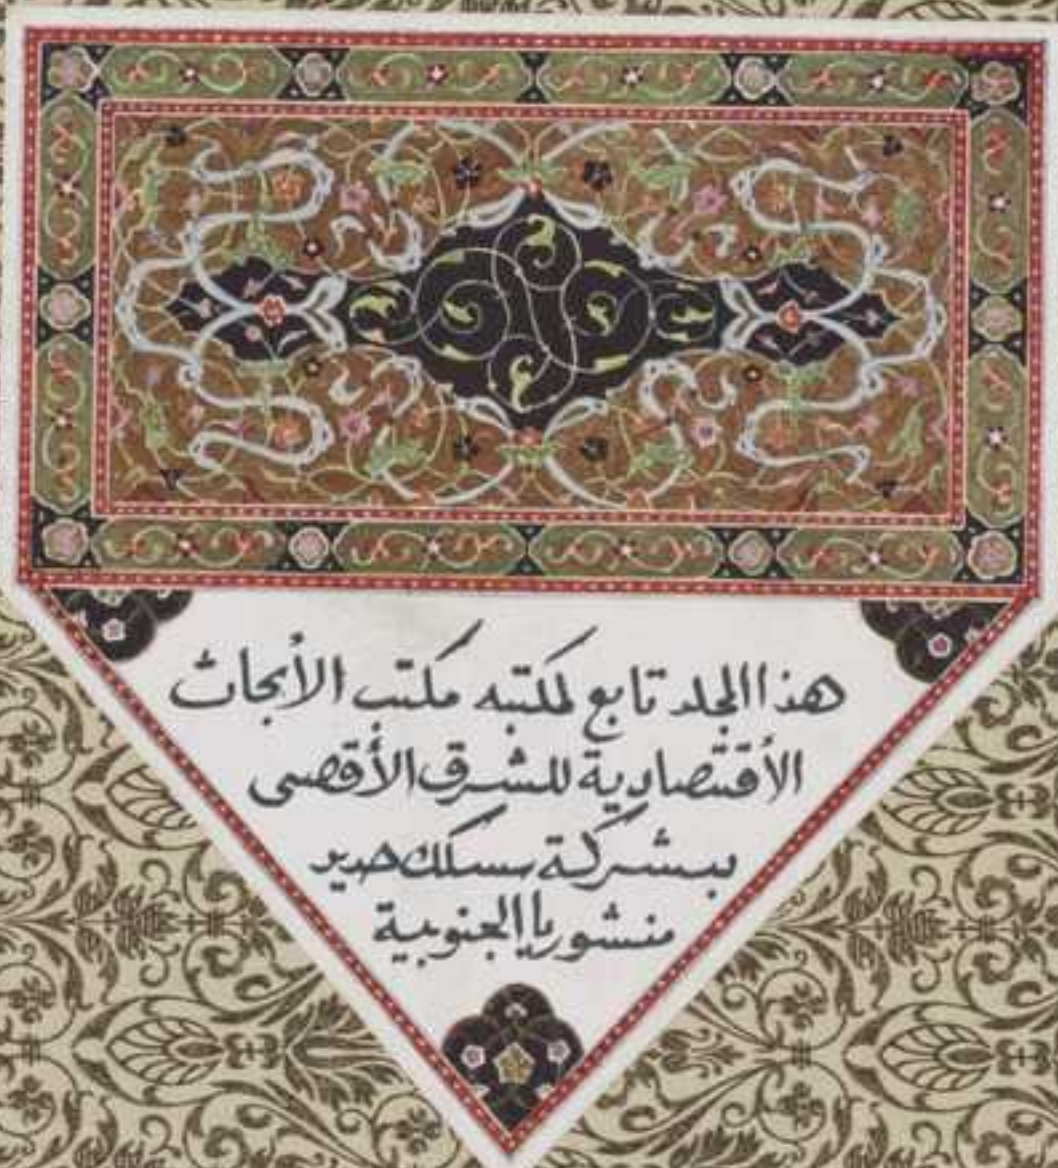 هذا المجلد تابع لمكتبه مكتب الأبحاث
الأقتصادية للشرق الأقصى
بشركة سكك حديد
منشوريا الجنوبية